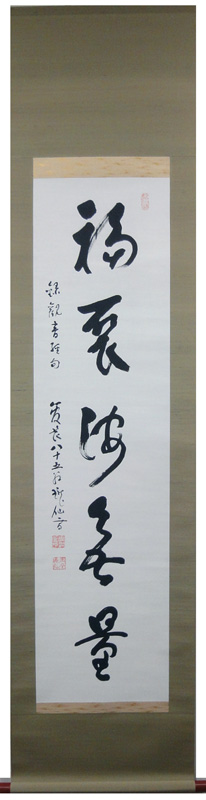 福聚海無量
録観音経句
八十五翁